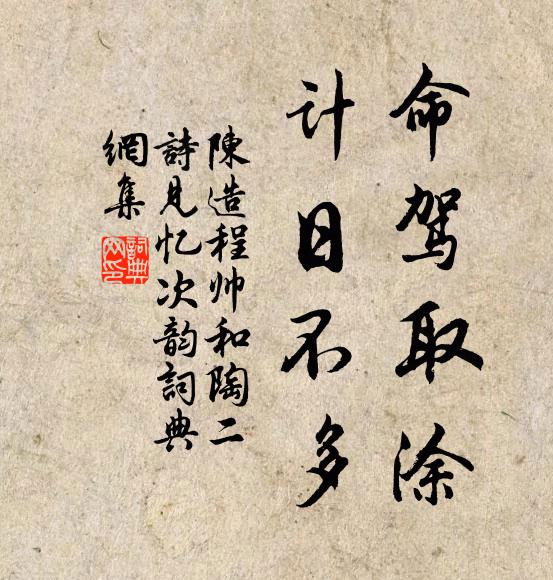 命驾取涂
计日不多
陳造程帅和陶二
詩見忆次韵詞典
網集
詞典網印